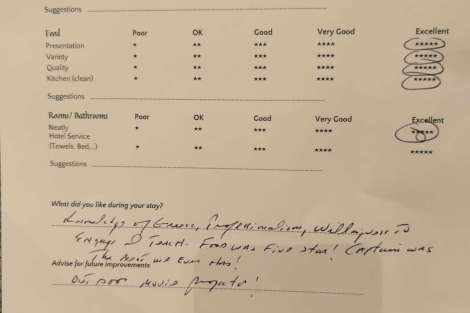 Suggestions
Food Poor OK Good Very Good Excellent
Presentation * ** *** **** *****
Variety * ** *** **** *****
Quality * ** *** **** *****
Kitchen (clean) * ** *** **** *****
Suggestions
Rooms/ Bathrooms Poor OK Good Very Good Excellent
Neatly * ** *** **** *****
Hotel Service
(Towels, Bed,...) * ** *** **** *****
Suggestions
What did you like during your stay?
Knowledge of Greece, Professionalism, Willingness to
Engage & Teach. Food was Five Star! Captain was
the Best we Ever Had!
Advise for future improvements
Outdoor movie projector!